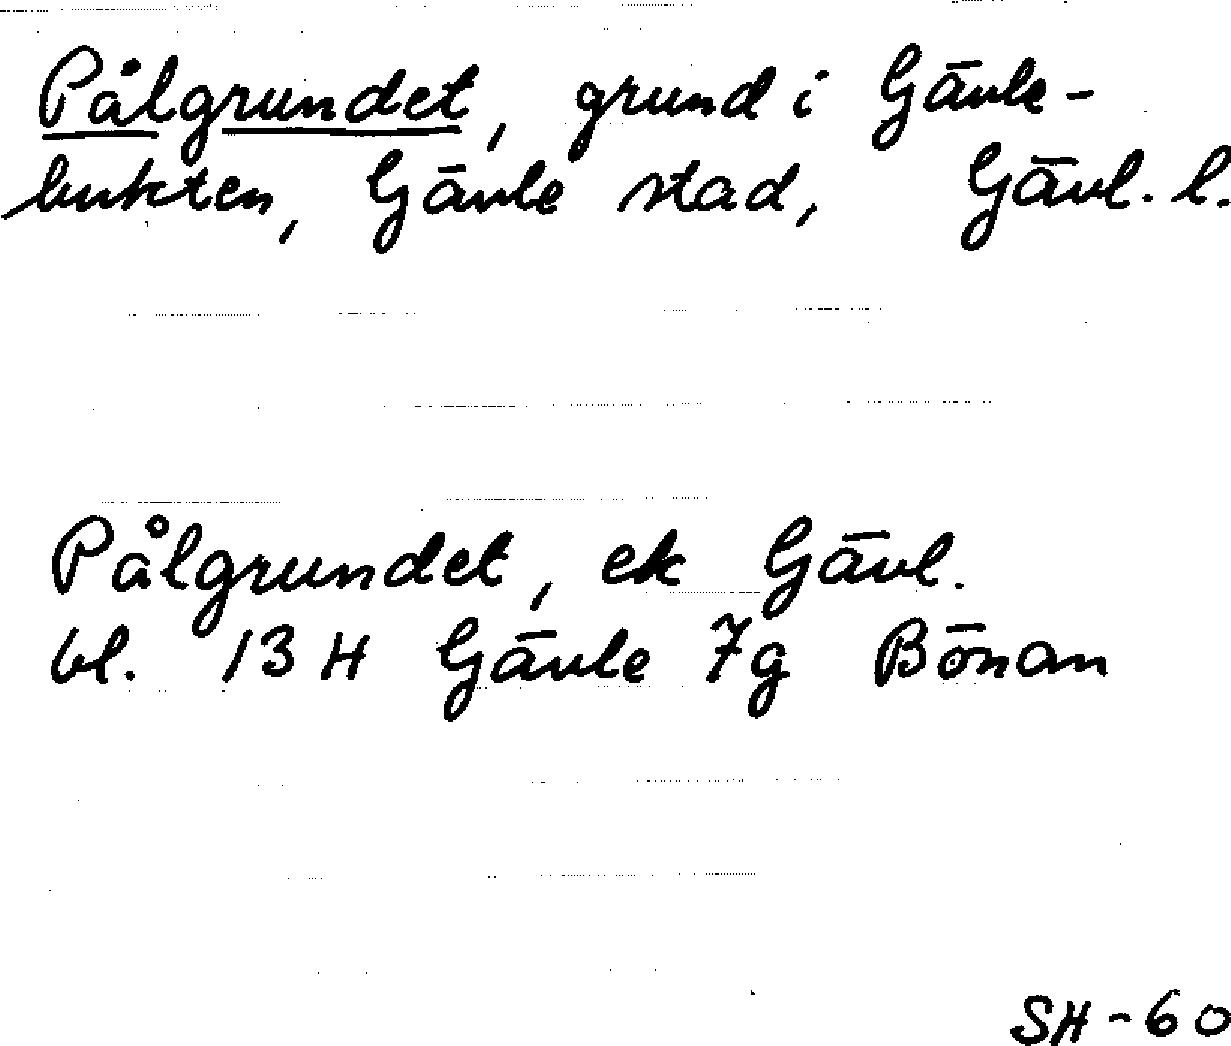 Pålgrundet, grund i Gävle-
bukten, Gävle stad, Gävl. l.
Pålgrundet, ek Gävl.
bl. 13 H Gävle 7g Bönan
SH-60